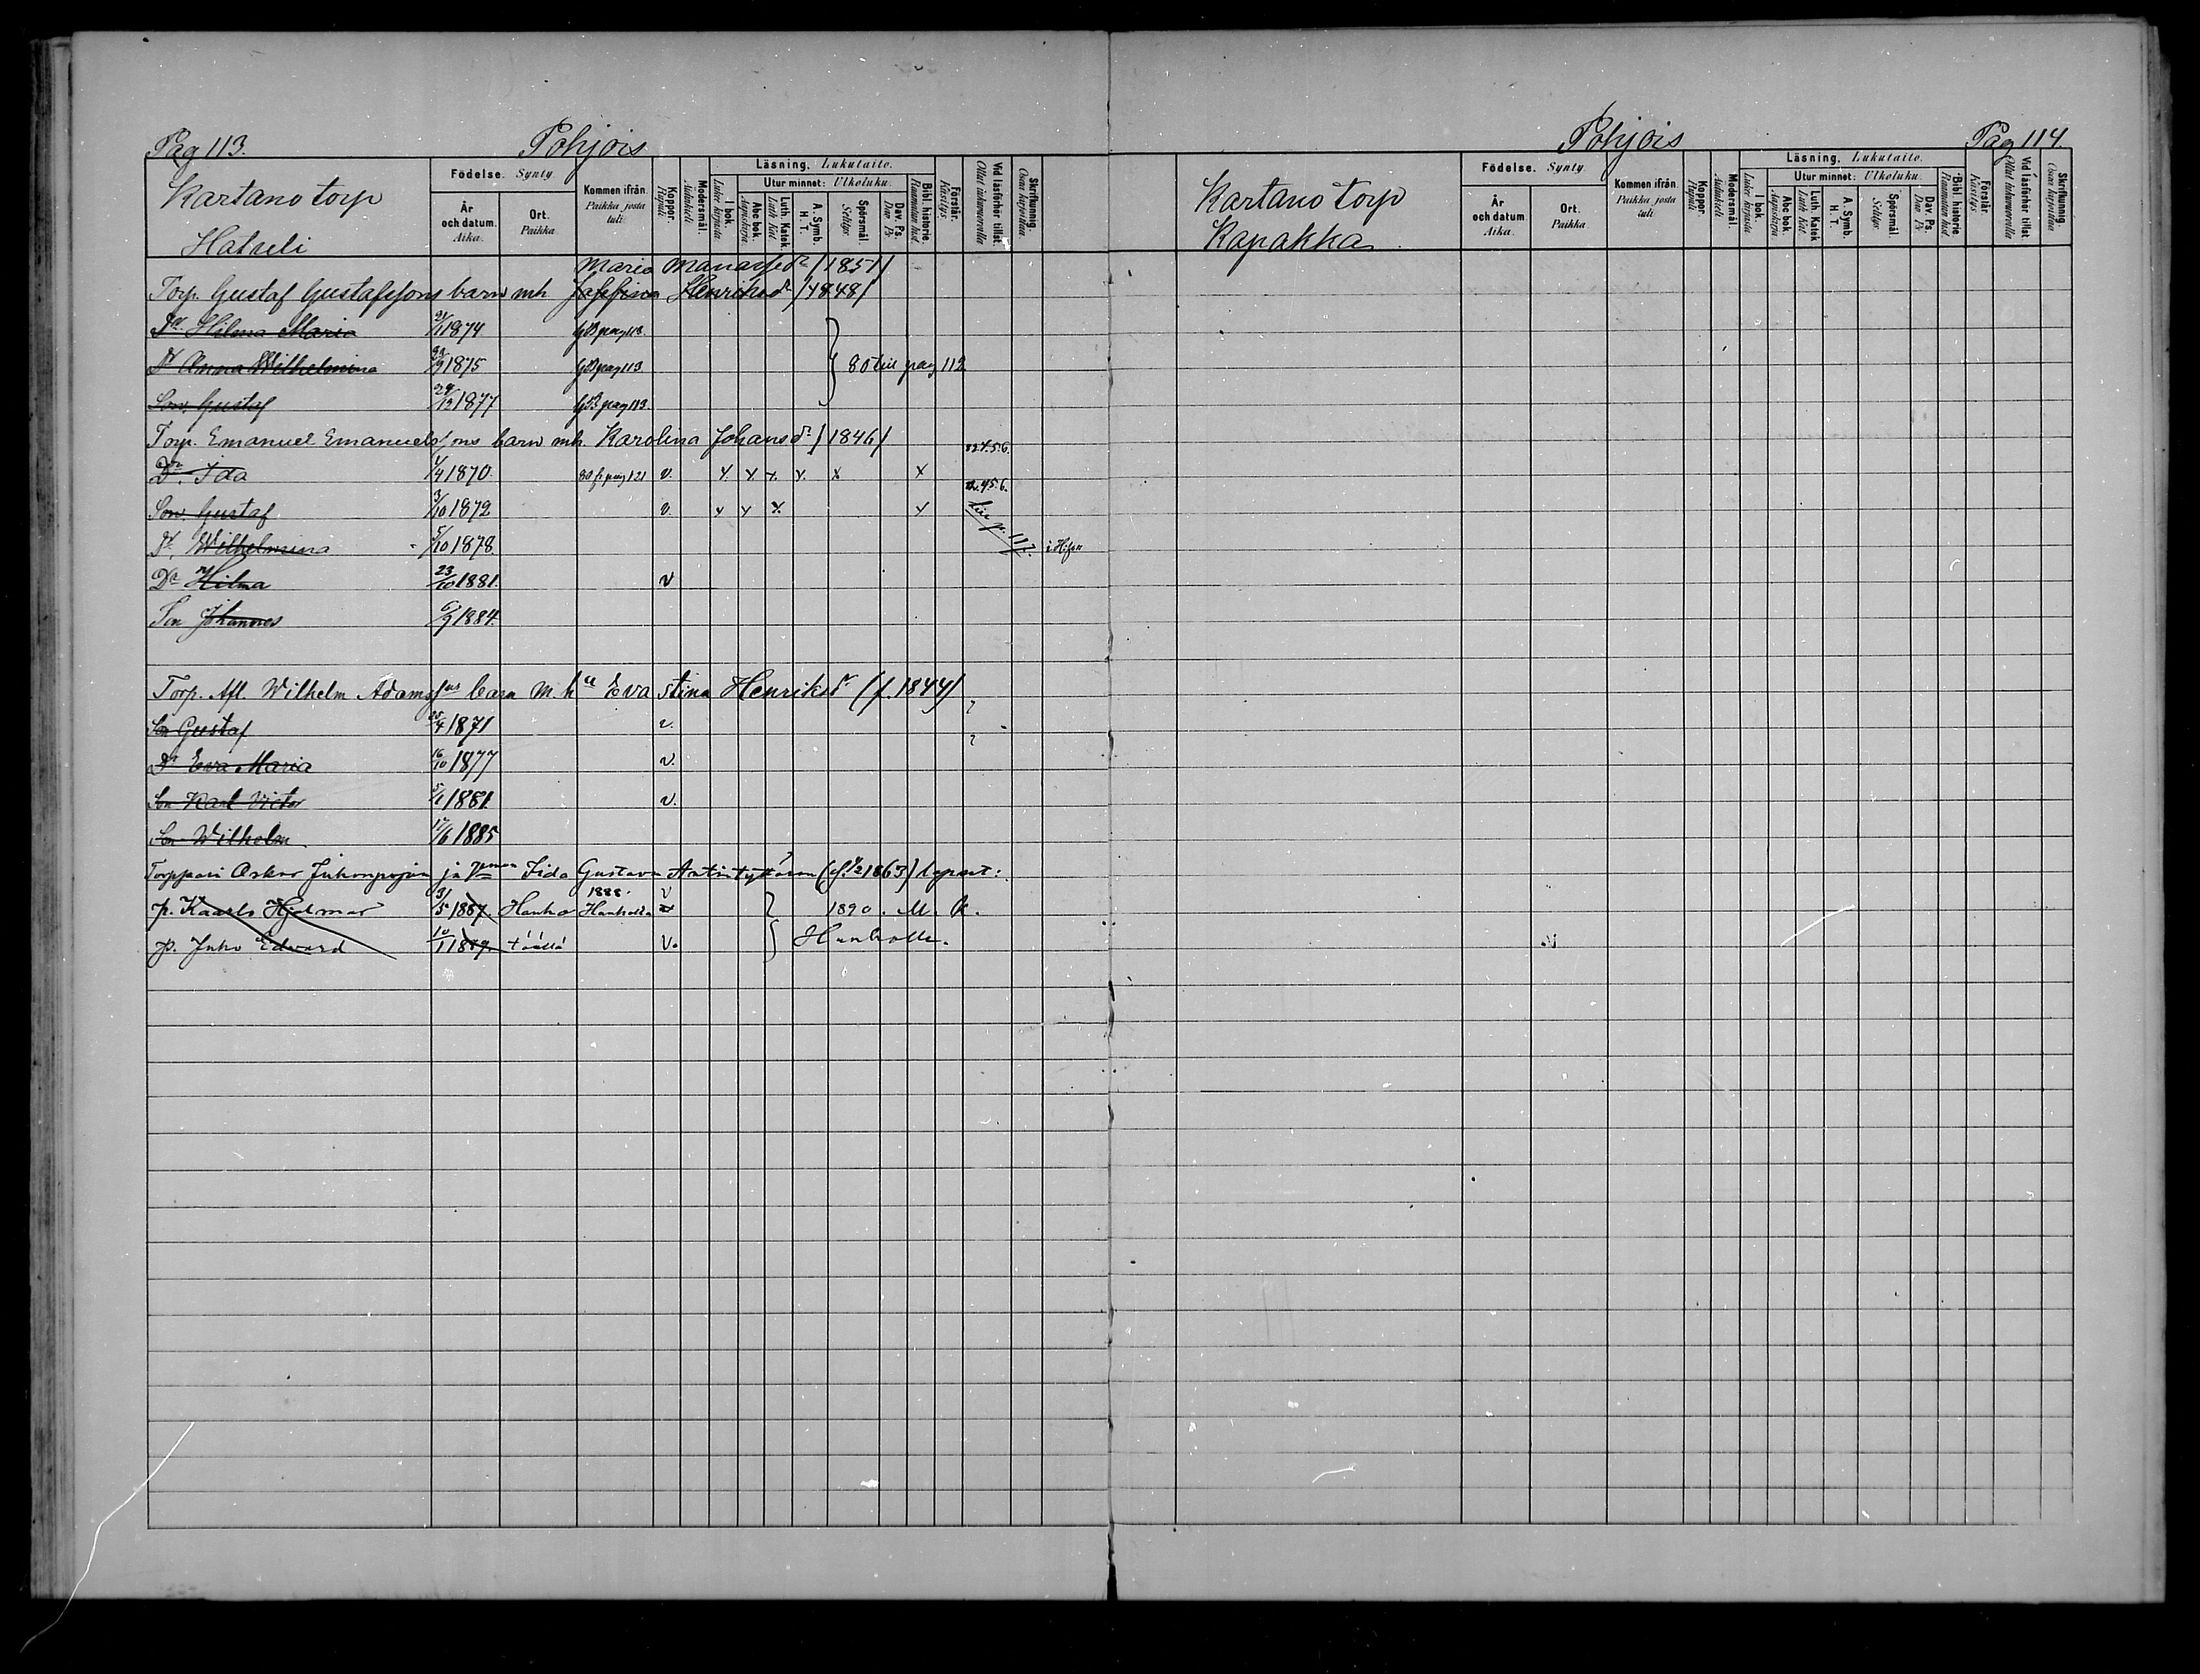 Pag 113. Pohjois
Kartano torp
Hatseli
Födelse. Synty. Kommen ifrån. Paikka josta tuli. Koppor. Rupuli. Modersmål. Läsning. Lukutaito. Förstår. Käsitys. Vid läsförhör tillst. Ollut lukuvuorolla Skrifkunnig. Osaa kirjoittaa
År och datum. Aika. Ort. Paikka. I bok. Lukee kirjasta Utur minnet: Ulkoluku. Abc bok. Aapiskirja. Luth. Katek. Luth. Kat. A. Symb. H. T. Spörsmål. Selitys. Dav. Ps. Daw. Ps. Bibl. historie. Raamatun hist.
Maria Manassed:r /1851/
Torp. Gustaf Gustafssons barn mh Josefina Henriksd:r /1848/
D:r Hilma Maria 1874 pag 113.
D:r Anna Wilhelmina 1875 pag 113 80 till pag 112
Son Gustaf 1877 pag 113.
Torp. Emanuel Emanuelssons barn mh. Karolina Johansd:r /1846/
D:r Ida 1/4 1870. 80 fr pag 121 v. x. x x. x. x x 82 4.5.6.
Son. Gustaf 3/10 1872 v. x x x. x 4 5 6.
D:r Wilhelmina 5/10 1878 till p. 117.
D:r Hilma 23/10 1881. v
Son Johannes 1884.
Torp. Afl. Wilhelm Adamssons barn m. h:u Eva Stina Henriksd:r (f. 1844)
Son Gustaf 25/4 1871 v. ?
D:r Eva Maria 16/10 1877 v. ?
Son Karl Victor 5/1 1881 v.
Son Wilhelm 17/6 1885
Torppari Oskar Juhonpojan ja Iida Gustava Antintyttären (1863) lapset:
p. Kaarlo Hjalmar 31/5 1887. Hanko 1888. Hangosta v 1890. M. k.
p. Juho Edvard 10/1 1889. täällä v. Hankoon.
Pohjois Pag 114.
Kartano torp
Kapakka
Födelse. Synty Kommen ifrån. Paikka josta tuli Koppor. Rupuli Modersmål. Läsning. Lukutaito. Förstår. Käsitys Vid läsförhör tillst. Ollut lukuvuorolla Skrifkunnig. Osaa kirjoittaa
År och datum. Aika. Ort. Paikka I bok. Lukee kirjasta Utur minnet: Ulkoluku. Abc bok. Aapiskirja Luth. Katek Luth. Kat. A. Symb. H. T. Spörsmål. Selitys. Dav. Ps. Daw. Ps. Bibl. historie Raamatun hist.